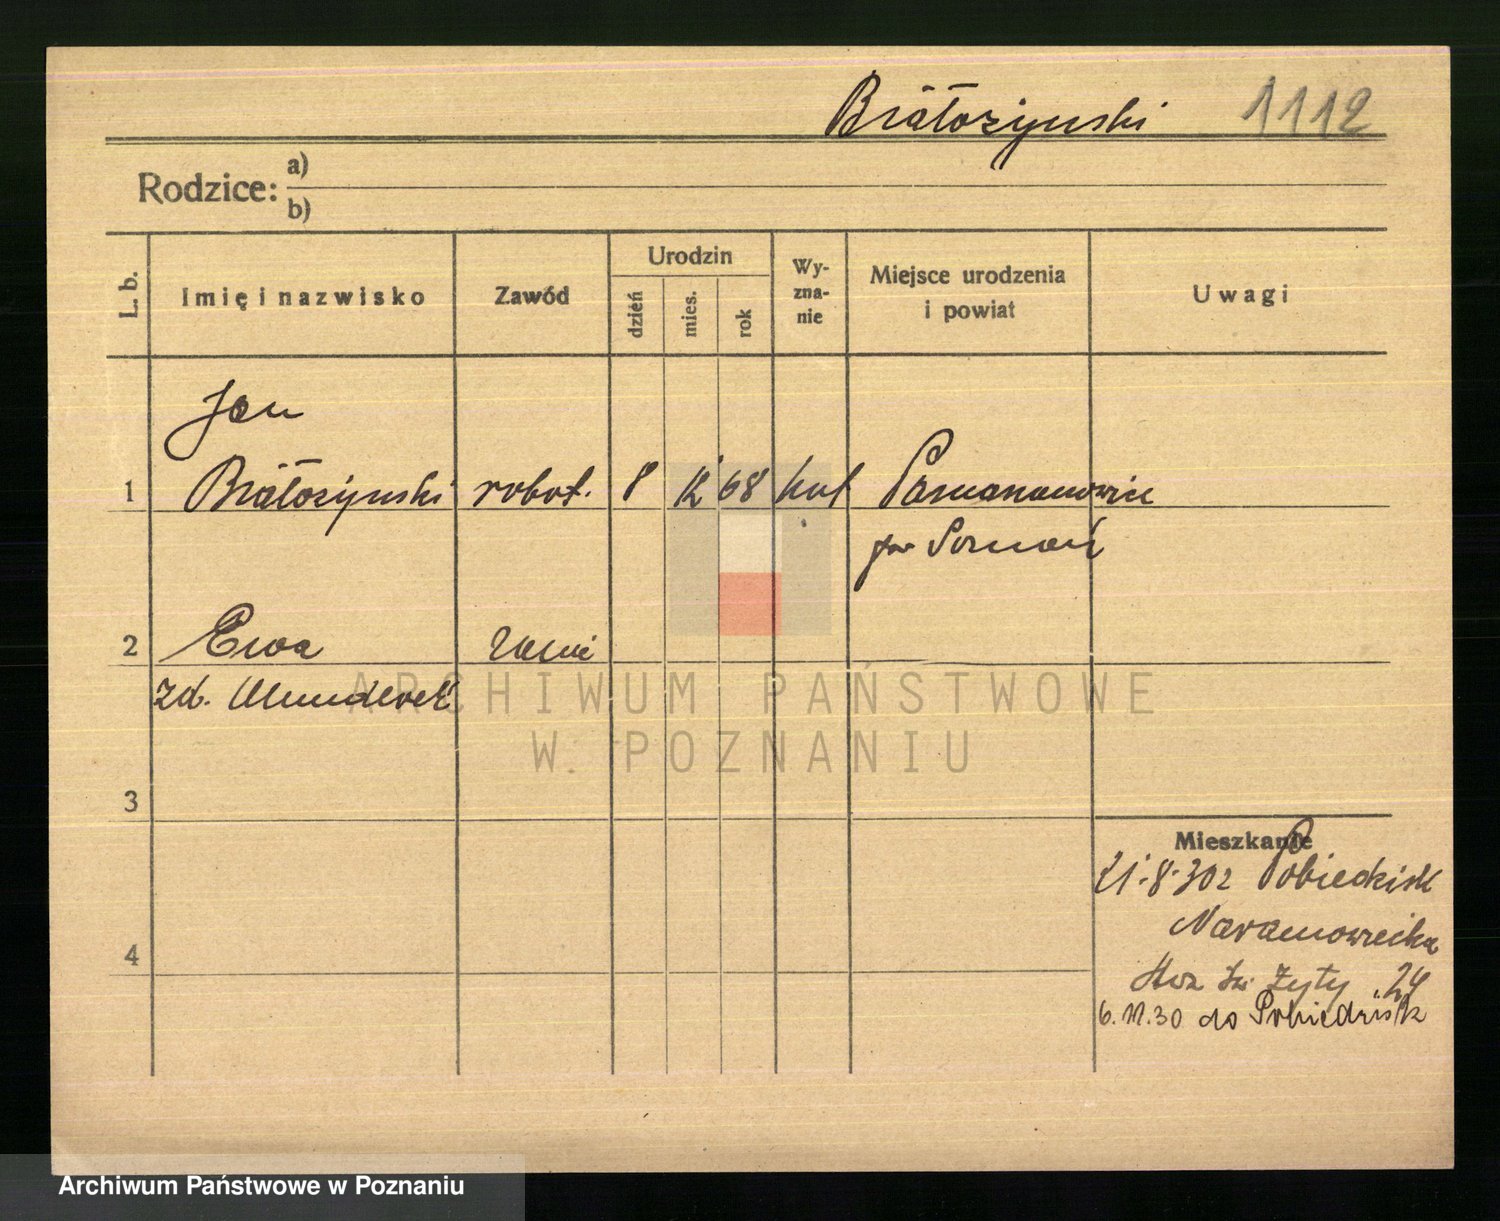 Białożyński 1112
Rodzice: a)
b)
L. b.
Imię i nazwisko
Zawód
Urodzin
dzień
mies.
rok
Wy-
zna-
nie
Miejsce urodzenia
i powiat
Uwagi
Jan
1 Białożyński robot. 8 12 68 kat
pow Poznań
2 Ewa
zd.
3
Mieszkanie
21.8.30 z Pobiedzisk
Naramowicka
4
24
6.11.30 do Pobiedzisk
ARCHIWUM PAŃSTWOWE
W POZNANIU
Archiwum Państwowe w Poznaniu